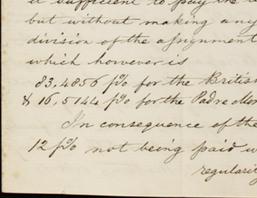 it sufficient to pay the
but without making any
division of the assignment
which however is
83,4856 p% for the British
& 16,5144 p% for the Padre Mon
In consequence of the
12 p% not being paid w
regularit